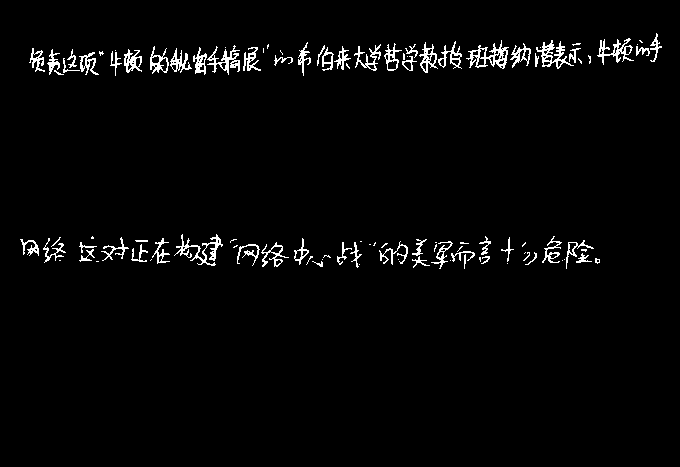 负责这项“牛顿的秘密手稿展”的希伯来大学哲学教授班梅纳潜表示,牛顿的手
网络这对正在构建“网络中心战”的美军而言十分危险。